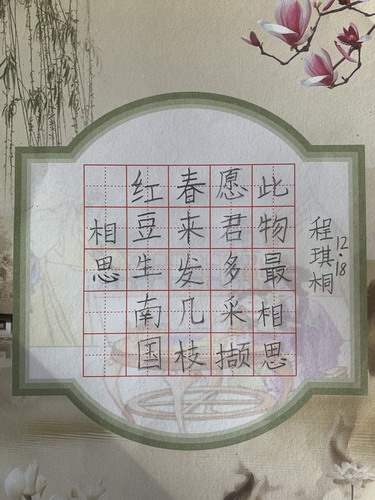 相思
红豆生南国
春来发几枝
愿君多采撷
此物最相思
程琪桐
12.18